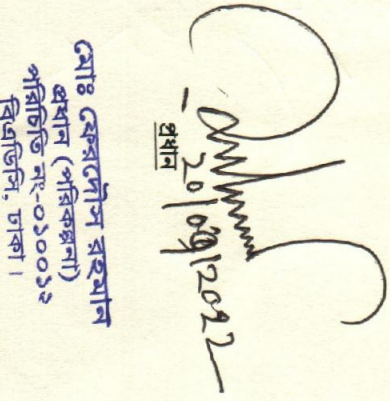 20/09/2022
প্রধান
মোঃ ফেরদৌস রহমান
প্রধান (পরিকল্পনা)
পরিচিতি নং-০১০০১২
বিএডিসি, ঢাকা।